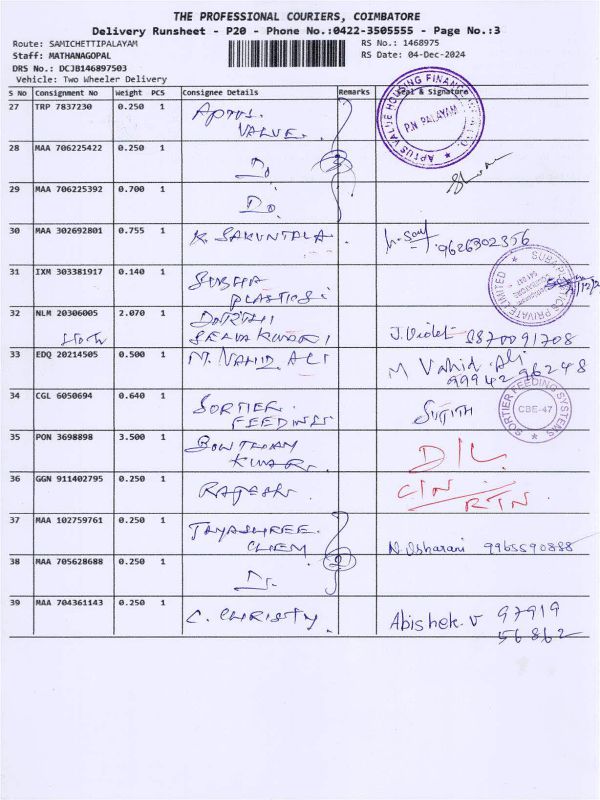 THE PROFESSIONAL COURIERS, COIMBATORE
Delivery Runsheet - P20 - Phone No.:0422-3505555 - Page No.:3
Route: SAMICHETTIPALAYAM RS No.: 1468975
Staff: MATHANAGOPAL RS Date: 04-Dec-2024
DRS No.: DCJB146897503
Vehicle: Two Wheeler Delivery
S No Consignment No Weight PCS Consignee Details Remarks Seal & Signature
27 TRP 7837230 0.250 1 APTUS. VALUE.
APTUS VALUE HOUSING FINANCE
P.N PALAYAM
28 MAA 706225422 0.250 1 Do
29 MAA 706225392 0.700 1 Do
30 MAA 302692801 0.755 1 K. SAKUNTALA 9626302356
31 IXM 303381917 0.140 1 SUBHA PLASTICS
PRIVATE LIMITED
32 NLM 20306005 2.070 1 SELVAKUMARI J. Violet 9870091708
33 EDQ 20214505 0.500 1 M. VAHID ALI M Vahid Ali
99942 96248
34 CGL 6050694 0.640 1 SORTIER. FEEDINGS SUJITH
SORTIER FEEDING SYSTEMS
CBE-47
35 PON 3698898 3.500 1 KUMAR. D/L
36 GGN 911402795 0.250 1 RAJESH RTN
37 MAA 102759761 0.250 1 JAYASHREE CHEM N. Usharani 9965590888
38 MAA 705628688 0.250 1 Do
39 MAA 704361143 0.250 1 C. CHRISTY Abishek.v 97919
56862